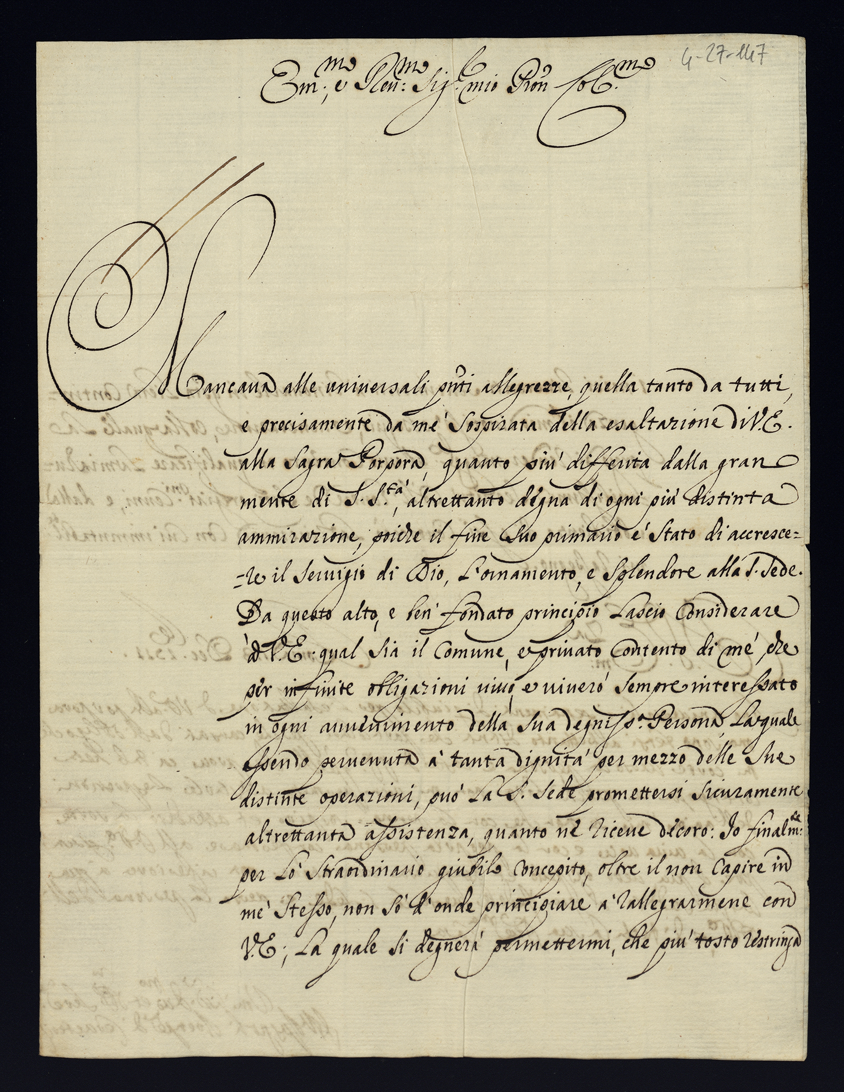 4-27-147
Em.mo e Reu.mo Sig.r mio Pron Col.mo
Mancaua alle uniuersali pn̄ti allegrezze, quella tanto da tutti,
e precisamente da me' sospirata della esaltazione di V.E.
alla Sagra Porpora, quanto più diffenita dalla gran
mente di S. S.tà, altrettanto degna di ogni più distinta
ammirazione, poiche il fine suo primario è stato di accresce=
=re il seruigio di Dio, l'ornamento, e splendore alla S. Sede.
Da questo alto, e ben' fondato principio lascio considerare
à V.E. qual sia il comune, e priuato contento di me', che
per infinite obligazioni uiuo, e uiuerò sempre interessato
in ogni auuenimento della sua degniss.a Persona, la quale
essendo peruenuta à tanta dignità per mezzo delle sue
distinte operazioni, può la S. Sede promettersi sicuramente
altrettanta assistenza, quanto nè riceue decoro: Io finalm.te
per lo straordinario giubilo concepito, oltre il non capire in
me' stesso, non sò d'onde principiare à rallegrarmene con
V.E., la quale si degnerà permettermi, che più tosto restringa